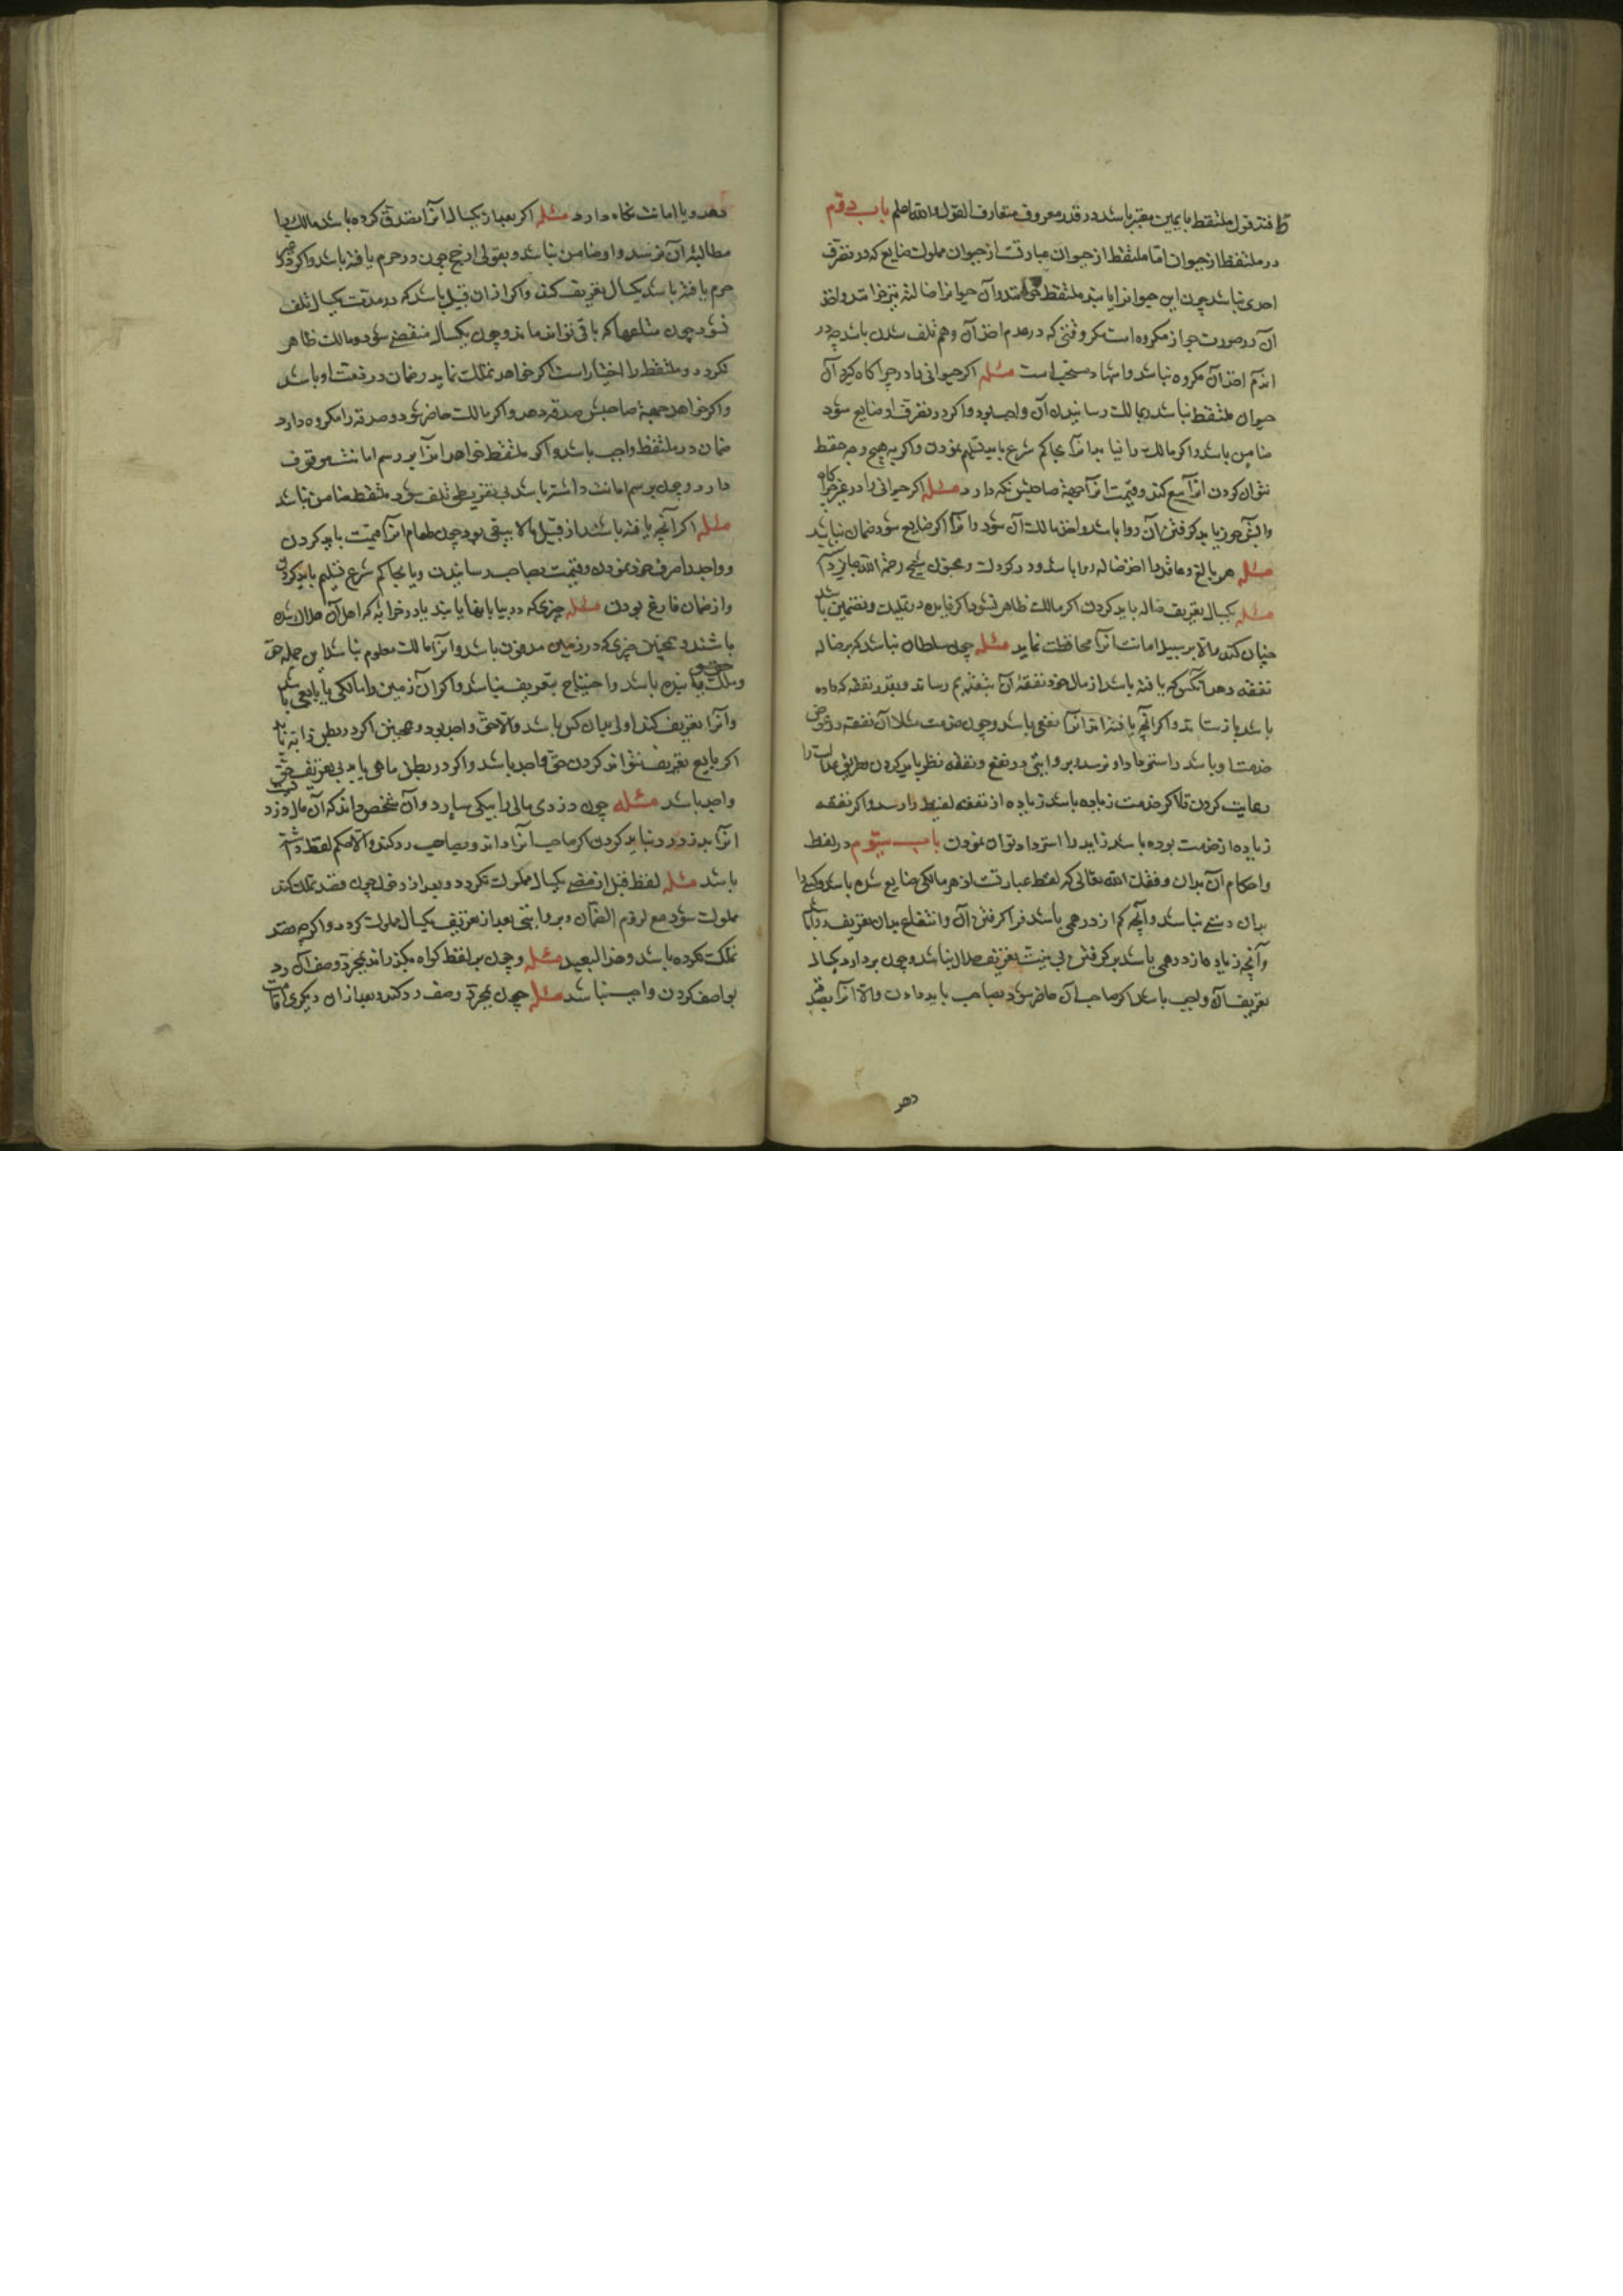 قول ملتقط با یمین معتبر باشد در قدر معروف متعارف القول والله اعلم باب دوم
در ملتقط از حیوان اما ملتقط از حیوان عبارتست از حیوان مملوک ضایع که در تصرف
احدی نباشد چون این حیوانرا یابند ملتقط خوانند و آن حیوانرا ضاله نیز خوانند و اخذ
آن در صورت جواز مکروه است مکر وقتی که در عدم اخذ آن وهم تلف شدن باشد چه در
اخذ آن مکروه نباشد و اشهاد مستحب است مسئله اکر حیوانی را در چراکاه کیرد آن
حیوان ملتقط نباشد بمالک رسانیدن آن واجب بود و اکر در تصرف او ضایع شود
ضامن باشد و اکر مالک را نیابد انرا بحاکم شرع باید تسلیم نمودن و اکر به هیچ وجه حفظ
نتوان کردن انرا بیع کند و قیمت انرا جهة صاحبش نکه دارد مسئله اکر حیوانی را در غیر چراکاه
باید کرفتن آن روا باشد و اخذ مالک آن شود و اکر ضایع شود ضمان نباشد
مسئله هر بالغ و عاقل را اخذ ضاله روا باشد و در کودک و مجنون شیخ رحمة الله جایز
مسئله یکسال تعریف ضاله باید کردن اکر مالک ظاهر نشود اکر یابنده در تملیک و تضمین
چنان کند والا بر سبیل امانت انرا محافظت نماید مسئله چون سلطان نباشد که بر ضاله
نفقه دهد آنکس که یافته باشد از مال خود نفقهٔ آن رساند و بقدر نفقه که داده
باشد باز ستاند و اکر آنچه یافته اند انرا نفعی باشد و چون خدمت مثلا آن نفقه در عوض
خدمت او باشد نظر باید کردن بطریق عدالت را
رعایت کردن تا اکر خدمت زیاده باشد زیاده از نفقه لقیط را رسد و اکر نفقه
زیاده از خدمت بوده باشد زاید را استرداد توان نمودن باب سیوم در لقطه
و احکام آن بدان وفقک الله تعالی که لقطه عبارتست از هر مالکی ضایع شده باشد و کسی را
بران دستی نباشد و آنچه کم از درهمی باشد فرا کرفتن آن و انتفاع بدان بی تعریف روا باشد
و آنچه زیاده از درهمی باشد بر کرفتن بی نیت تعریف حلال نباشد و چون بردارد یکسال
تعریف آن واجب باشد اکر صاحب آن حاضر شود بصاحب باید دادن والا انرا بصدقه
دهد
دهد و یا امانت نکاه دارد مسئله اکر بعد از یکسال انرا تصدق کرده باشد مالک را
مطالبهٔ آن نرسد و او ضامن نباشد و بقولی ارجح چون در حرم یافته باشد و اکر در غیر
حرم یافته باشد یکسال تعریف کند و اکر از ان قبیل باشد که در مدت یکسال تلف
نشود چون متاعها که باقی تواند ماند و چون یکسال منقضی شود و مالک ظاهر
نکردد ملتقط را اختیار است اکر خواهد تملک نماید و ضمان در ذمت او باشد
و اکر خواهد جهة صاحبش صدقه دهد و اکر مالک حاضر شود و صدقه را مکروه دارد
ضمان در ملتقط واجب باشد و اکر ملتقط خواهد انرا بر رسم امانت موقوف
دارد و چون برسم امانت داشته باشد بی تفریطی تلف شود ملتقط ضامن نباشد
مسئله اکر آنچه یافته باشند از قبیل مالا یبقی بود چون طعام انرا قیمت باید کردن
و واجد را صرف خود نمودن و قیمت بصاحب رسانیدن و یا بحاکم شرع تسلیم باید کردن
و از ضمان فارغ بودن مسئله چیزی که در بیابانها یابند یا در خرابه که اهل آن هلاک شده
باشند و همچنین چیزی که در زمین مدفون باشد و انرا مالک معلوم نباشد این جمله حق
و ملک یابنده باشد و احتیاج بتعریف نباشد و اکر آن زمین را مالکی یا بایعی باشد
و آنرا تعریف کند اولی بدان کس باشد والا حق واجد بود و همچنین اکر در بطن دابه یابد
اکر بایع تعریف نتواند کردن حق واجد باشد و اکر در بطن ماهی یابد بی تعریف حق
واجد باشد مسئله چون دزدی مالی را بیکی سپارد و آن شخص داند که آن مال دزد
انرا بدزد رد نباید کردن اکر صاحب انرا داند و بصاحب رد کند والا حکم لقطه داشته
باشد مسئله لقطه قبل از مضی یکسال مملوک نکردد و بعد از دخول چون قصد تملک کند
مملوک شود مع لزوم الضمان و بروایتی بعد از تعریف یکسال مملوک کردد و اکرچه قصد
تملک نکرده باشد و هذا البعید مسئله و چون بر لقطه کواه نکذراند بمجرد وصف آن رد
بواصف کردن واجب نباشد مسئله چون بمجرد وصف رد کند و بعد از ان دیکری اقامت